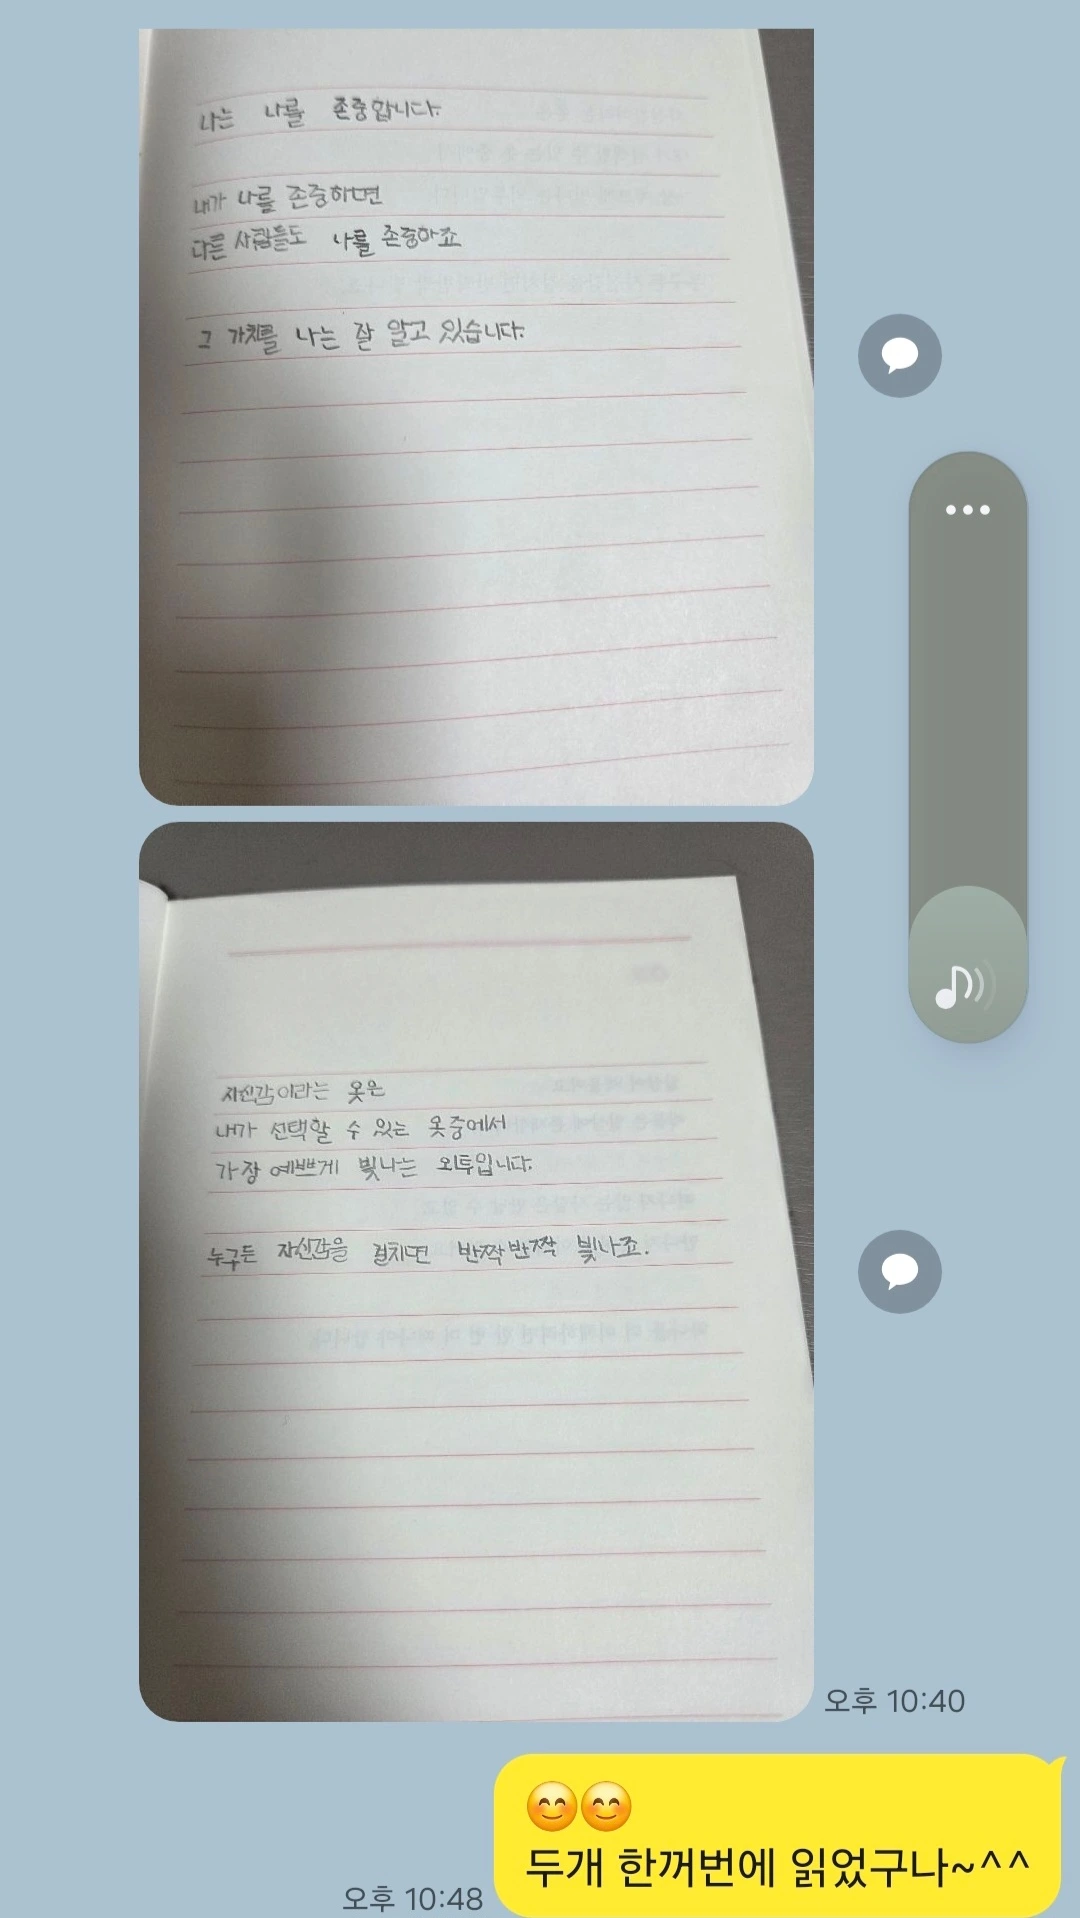 나는 나를 존중합니다.
내가 나를 존중하면
다른 사람들도 나를 존중하죠
그 가치를 나는 잘 알고 있습니다.
자신감이라는 옷은
내가 선택할 수 있는 옷중에서
가장 예쁘게 빛나는 외투입니다.
누구든 자신감을 걸치면 반짝반짝 빛나죠.
오후 10:40
😊😊
두개 한꺼번에 읽었구나~^^
오후 10:48